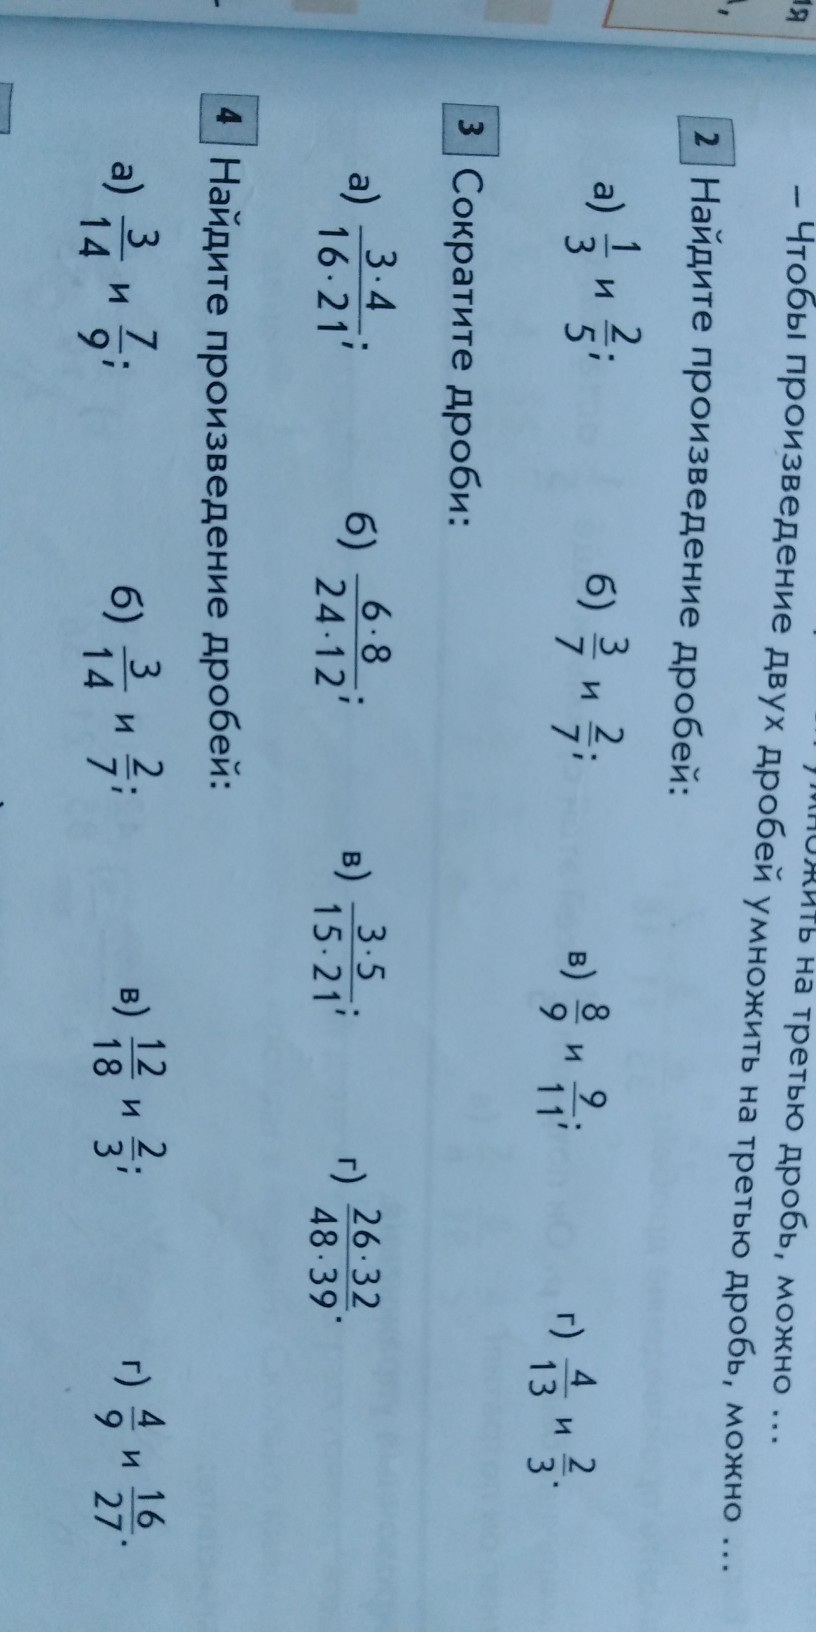 ия
умножить на третью дробь, можно ...
– Чтобы произведение двух дробей умножить на третью дробь, можно ...
2 Найдите произведение дробей:
а) 1/3 и 2/5; б) 3/7 и 2/7; в) 8/9 и 9/11; г) 4/13 и 2/3.
3 Сократите дроби:
а) 3·4/16·21; б) 6·8/24·12; в) 3·5/15·21; г) 26·32/48·39.
4 Найдите произведение дробей:
а) 3/14 и 7/9; б) 3/14 и 2/7; в) 12/18 и 2/3; г) 4/9 и 16/27.